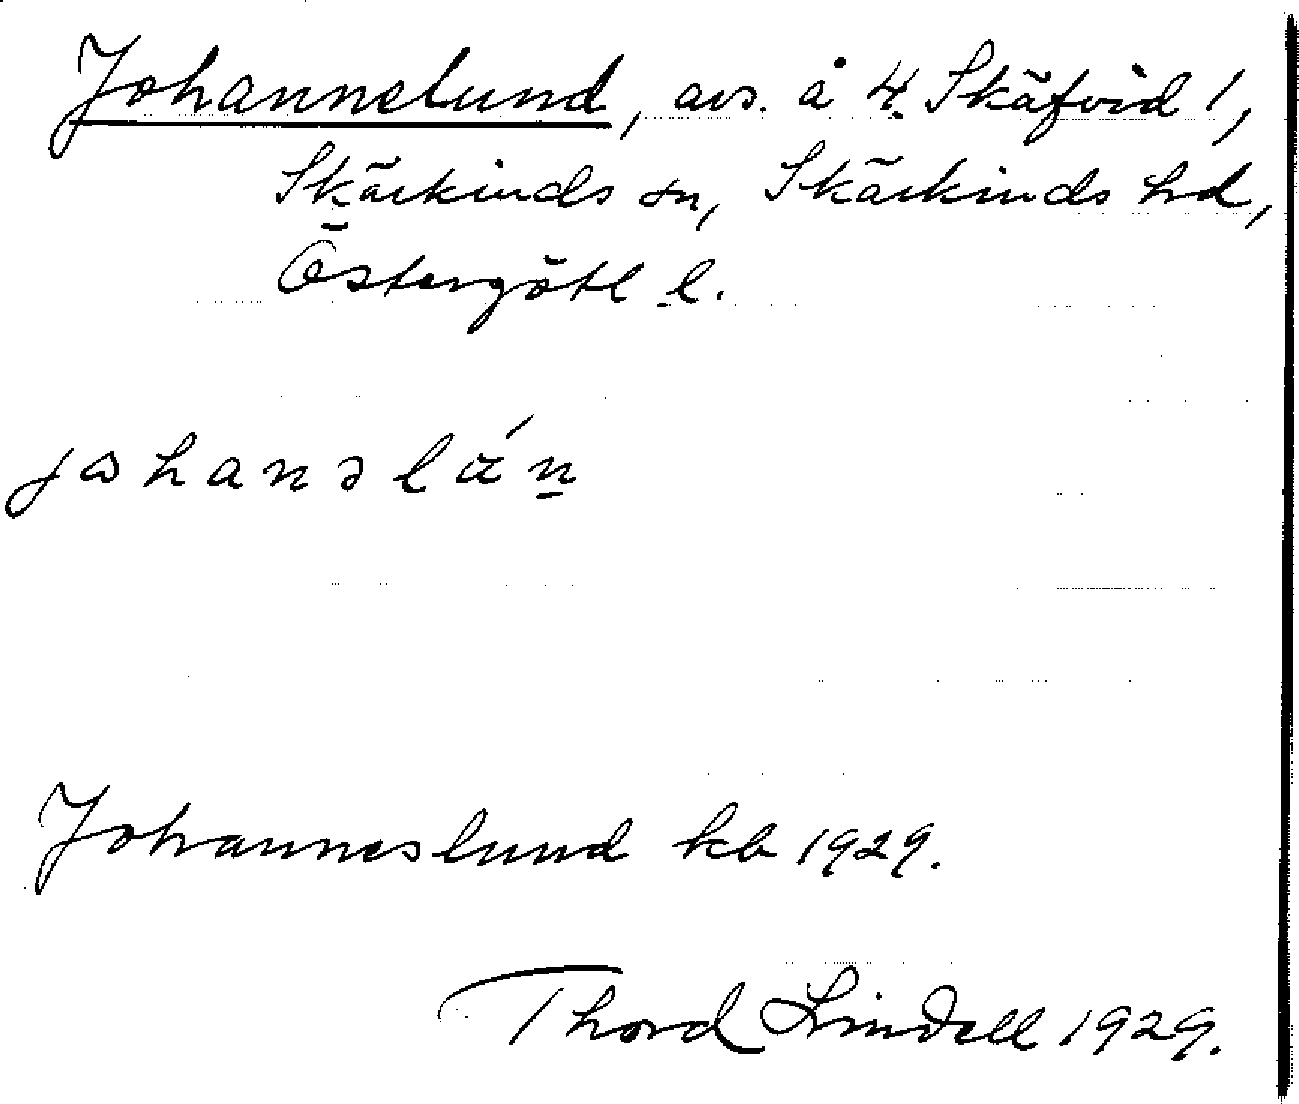 Johannelund, avs. å 4. Skäfvid 1,
Skärkinds sn, Skärkinds hd,
Östergötl l.
johanslán
Johanneslund kb 1929.
Thord Lindell 1929.